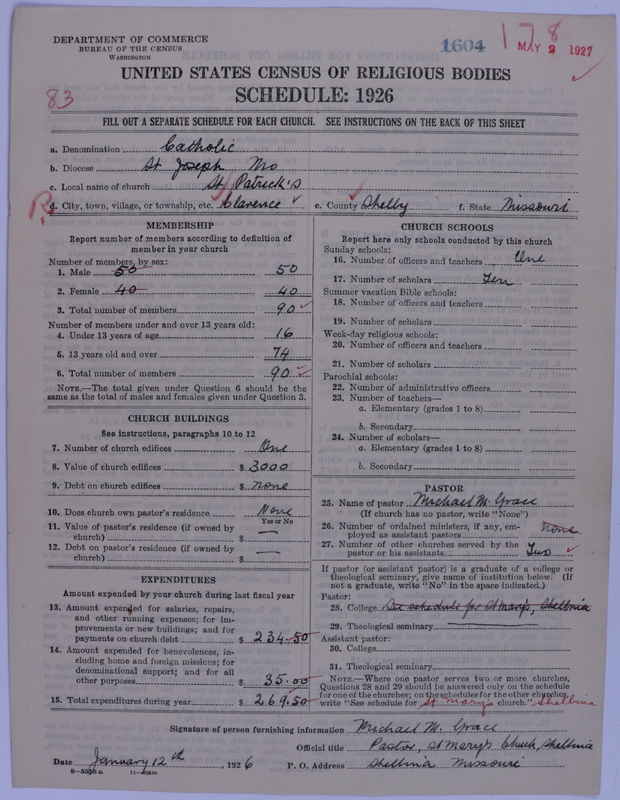 DEPARTMENT OF COMMERCE
BUREAU OF THE CENSUS
WASHINGTON
1604
178
MAY 2 1927
UNITED STATES CENSUS OF RELIGIOUS BODIES
SCHEDULE: 1926
83
FILL OUT A SEPARATE SCHEDULE FOR EACH CHURCH. SEE INSTRUCTIONS ON THE BACK OF THIS SHEET
a. Denomination Catholic
b. Diocese St Joseph Mo
c. Local name of church St Patrick's
R d. City, town, village, or township, etc. Clarence e. County Shelby f. State Missouri
MEMBERSHIP
Report number of members according to definition of
member in your church
Number of members, by sex:
1. Male 50 50
2. Female 40 40
3. Total number of members 90
Number of members under and over 13 years old:
4. Under 13 years of age 16
5. 13 years old and over 74
6. Total number of members 90
NOTE.—The total given under Question 6 should be the
same as the total of males and females given under Question 3.
CHURCH BUILDINGS
See instructions, paragraphs 10 to 12
7. Number of church edifices One
8. Value of church edifices $ 3000
9. Debt on church edifices $ none
10. Does church own pastor's residence None
Yes or No
11. Value of pastor's residence (if owned by
church) $ —
12. Debt on pastor's residence (if owned by
church) $ —
EXPENDITURES
Amount expended by your church during last fiscal year
13. Amount expended for salaries, repairs,
and other running expenses; for im-
provements or new buildings; and for
payments on church debt $ 234.50
14. Amount expended for benevolences, in-
cluding home and foreign missions; for
denominational support; and for all
other purposes $ 35.00
15. Total expenditures during year $ 269.50
CHURCH SCHOOLS
Report here only schools conducted by this church
Sunday schools:
16. Number of officers and teachers One
17. Number of scholars Ten
Summer vacation Bible schools:
18. Number of officers and teachers
19. Number of scholars
Week-day religious schools:
20. Number of officers and teachers
21. Number of scholars
Parochial schools:
22. Number of administrative officers
23. Number of teachers—
a. Elementary (grades 1 to 8)
b. Secondary
24. Number of scholars—
a. Elementary (grades 1 to 8)
b. Secondary
PASTOR
25. Name of pastor Michael M. Grace
(If church has no pastor, write "None")
26. Number of ordained ministers, if any, em-
ployed as assistant pastors None
27. Number of other churches served by the
pastor or his assistants Two
If pastor (or assistant pastor) is a graduate of a college or
theological seminary, give name of institution below. (If
not a graduate, write "No" in the space indicated.)
Pastor:
28. College See schedule for St Mary's, Shelbina
29. Theological seminary
Assistant pastor:
30. College
31. Theological seminary
NOTE.—Where one pastor serves two or more churches,
Questions 28 and 29 should be answered only on the schedule
for one of the churches; on the schedules for the other churches,
write "See schedule for St Mary's church." Shelbina
Signature of person furnishing information Michael M. Grace
Official title Pastor, St Mary's Church, Shelbina
Date January 12th, 1926 P. O. Address Shelbina Missouri